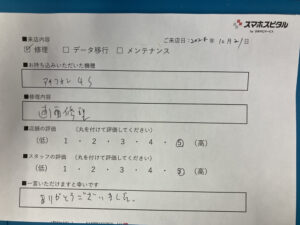 スマホスピタル
■来店内容
ご来店日:2024年10月21日
☑ 修理 □ データ移行 □ メンテナンス
■お持ち込みいただいた機種
■修理内容
画面修理
■店舗の評価 (丸を付けて評価してください)
(低) 1 ・ 2 ・ 3 ・ 4 ・ 5 (高)
■スタッフの評価 (丸を付けて評価してください)
(低) 1 ・ 2 ・ 3 ・ 4 ・ 5 (高)
■一言いただけますと幸いです
ありがとうございました。